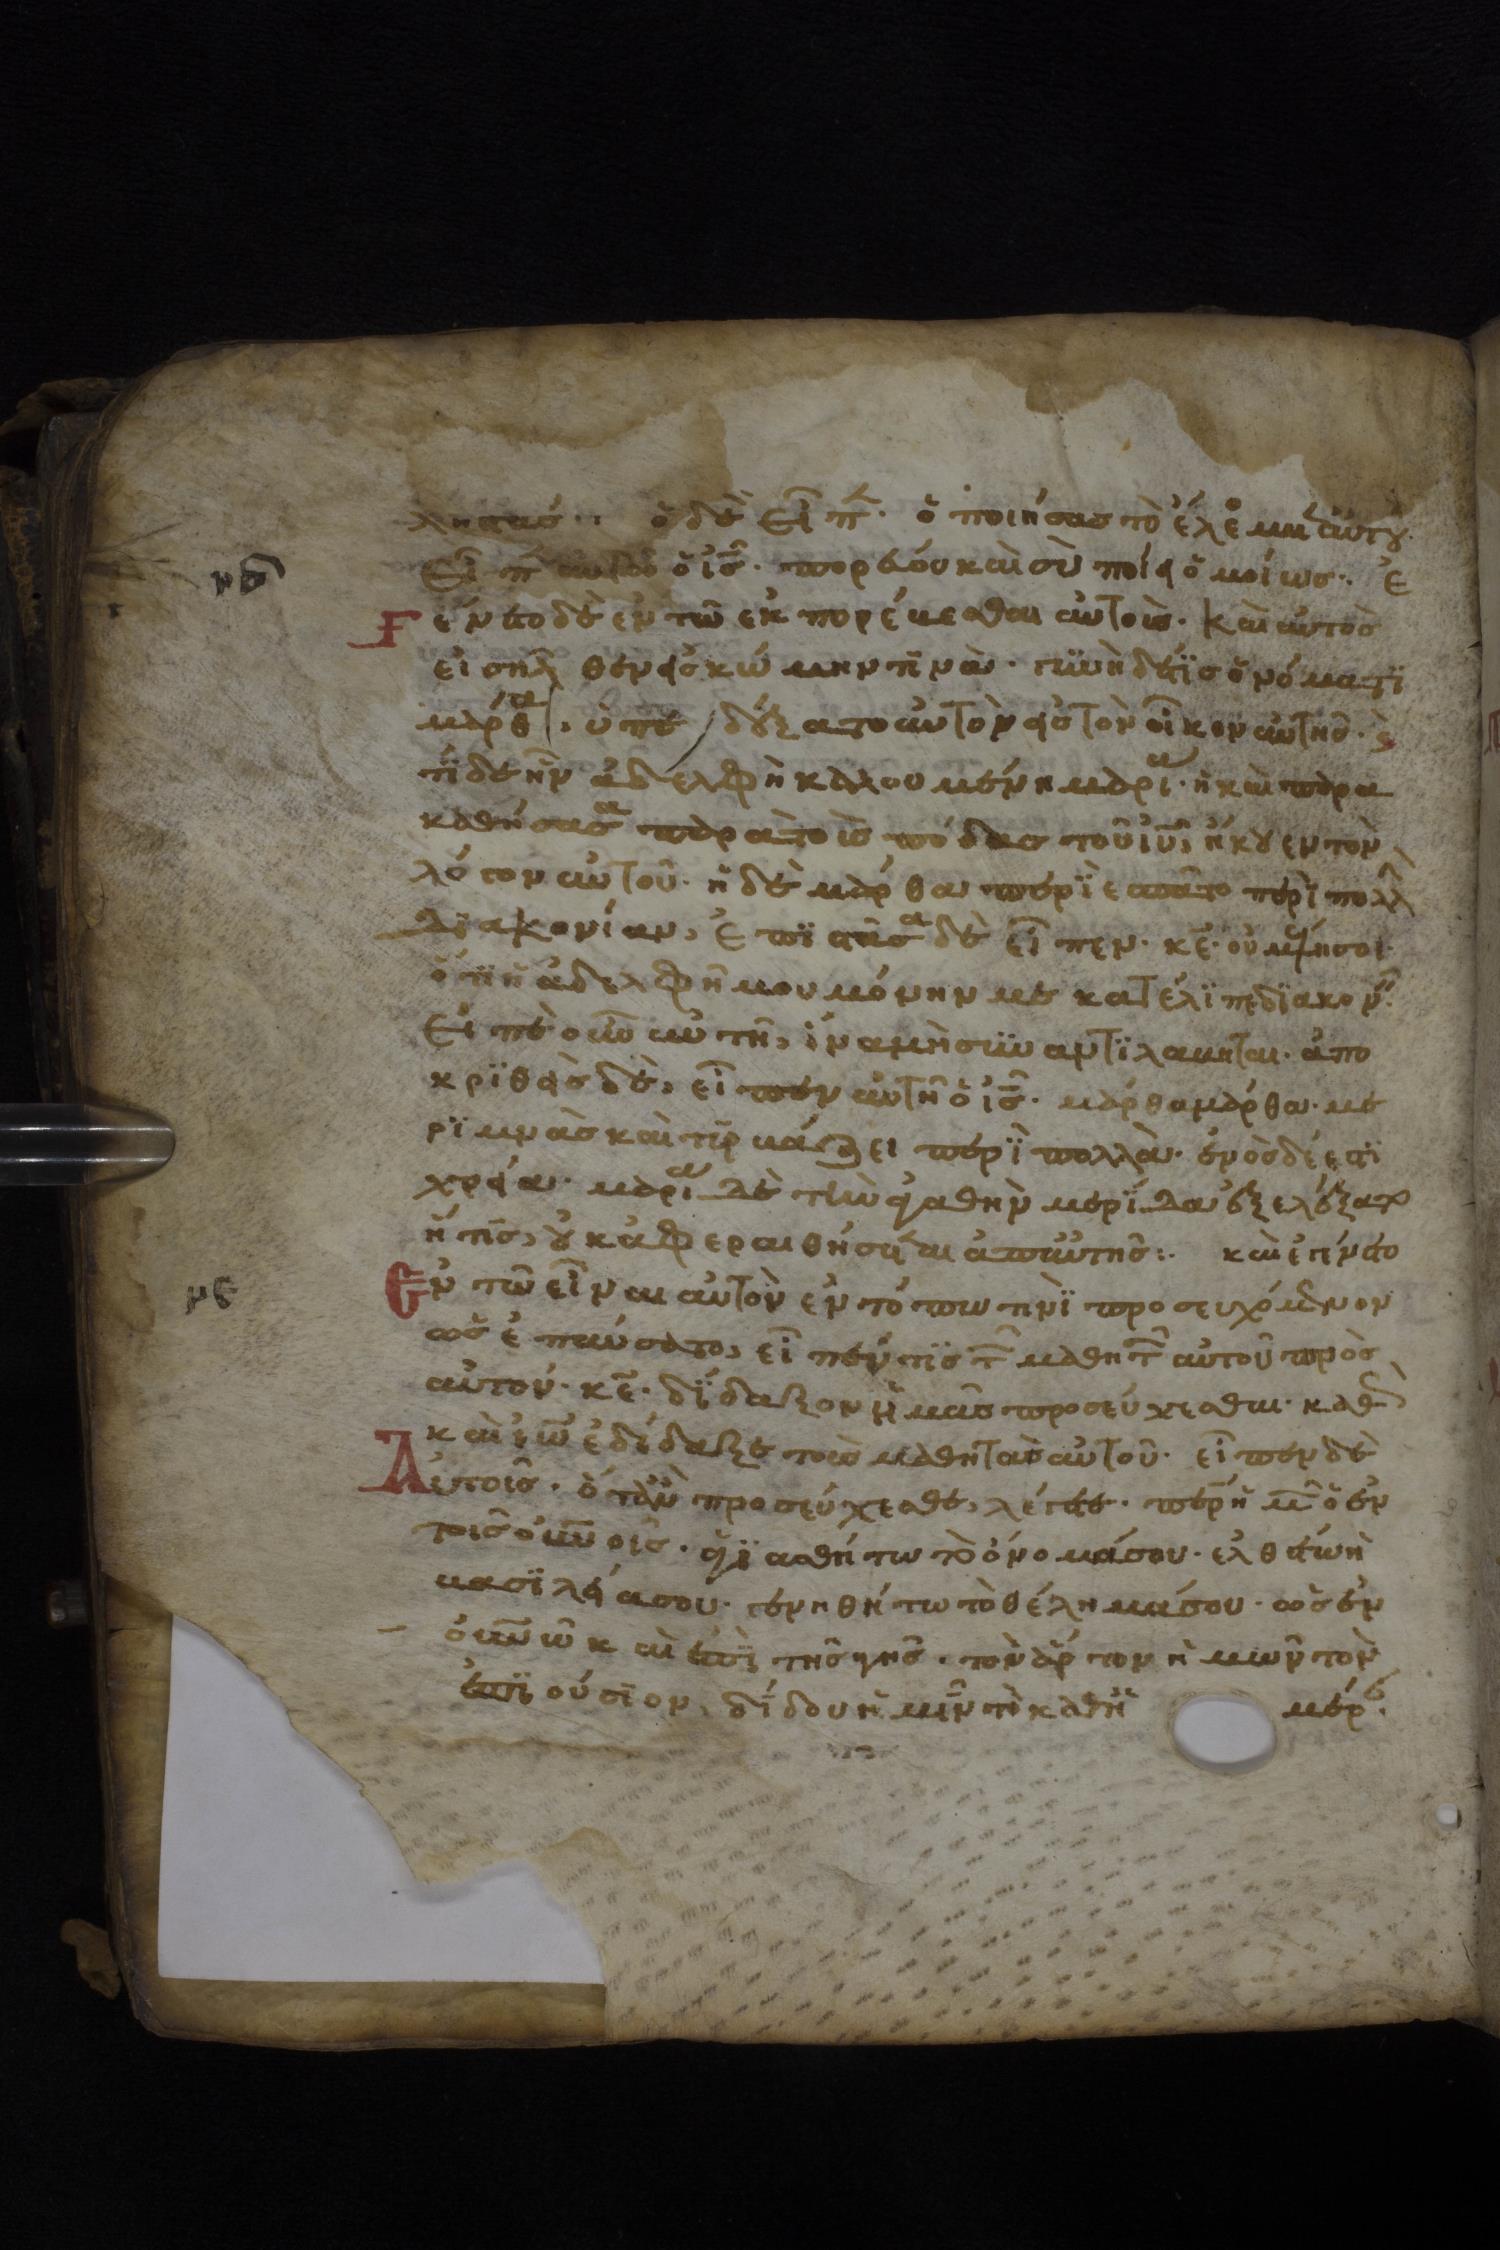 ληστασ·: ὁ δὲ εἶπ· ὁ ποιήσασ τὸ ἔλεο μετ αὐτου·
μδ
εἶπ αὐτῶ ὁ ισ̅· πορεύου καὶ σὺ ποίει ὁμοίωσ·: Ἐ
γένετο δὲ ἐν τῶ ἐκπορεύεσθαι αὐτοὺσ· καὶ αὐτὸσ
εἰσῆλθεν εἰσ κώμην τινὰ· γυνὴ δέ τισ ὀνόματι
μάρθα, ὑπεδέξατο αὐτὸν εἰσ τὸν οἶκον αὐτῆσ· ἐ
τῆδε ἦν ἀδελφὴ καλουμένη μαρία· ἣ καὶ παρα
καθήσασα παρὰ τοὺσ πόδασ τοῦ ιυ̅, ἤκουεν τὸν
λόγον αὐτοῦ· ἡ δὲ μάρθα περιεσπᾶτο περὶ πολλὴ
διακονίαν, ἐπιστᾶσα δὲ εἶπεν· κε̅· οὐ μέλησοι
ὅτι ἡ ἀδελφή μου μόνην με κατέλιπε διακον·
εἰπὲ οὖν αὐτῆ, ἵνα μὴ συν αντιλαβηται· ἀπο
κριθεὶσ δὲ, εἶπεν αὐτῆ ὁ ισ̅· μάρθα μάρθα· με
ριμνᾶσ καὶ τυρβάζει περὶ πολλὰ· ἑνὸσ δέ εστι
χρεία· μαρία δὲ τὴν ἀγαθὴν μερίδα ἐξελέξατο
ἥτισ, οὐκ ἀφεραιθήσεται ἀπ αὐτῆσ:· καὶ ἐγένετο
με
ἐν τῶ εἶναι αὐτὸν ἐν τόπω τινὶ προσευχόμενον
ὡσ ἐπαύσατο, εἶπέν τισ τ̅ μαθητ̅ αὐτοῦ πρὸσ
αὐτον· κε̅· δίδαξον ἡμᾶσ προσεύχεσθαι· καθ
καὶ ιω̅ ἐδίδαξε τοὺσ μαθητὰσ αὐτοῦ· εἶπεν δὲ
Αὐτοισ· ὅταν προσεύχεσθε, λέγετε· πε̅ρ ἡμ̅ ὁ ἐν
τοισ ουν̅οισ· ἁγιασθήτω τὸ ὄνομά σου· ἐλθέτω ἡ
βασιλεία σου· γενηθήτω τὸ θέλημά σου· ὡσ ἐν
ουν̅ω καὶ ἐπὶ τῆσ γῆσ· τὸν ἄρτον ἡμῶν τὸν
ἐπιούσιον, δίδου ἡμῖν τὸ καθή μερ·